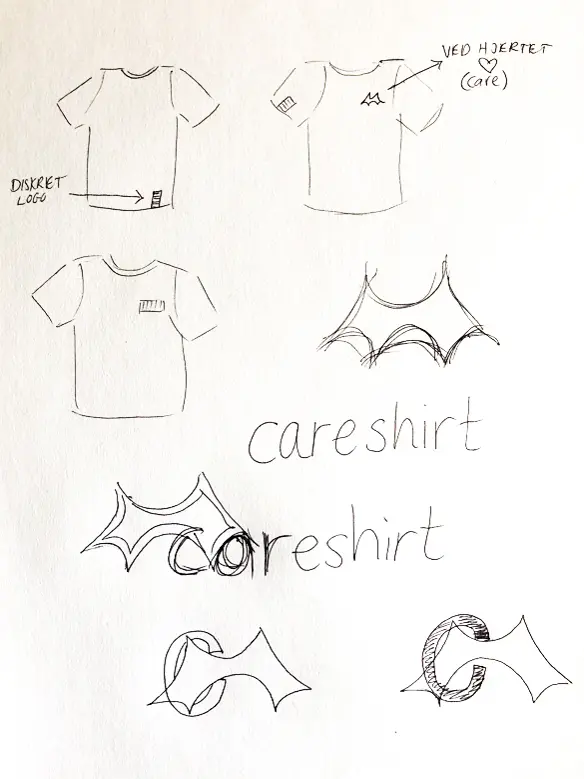 VED HJERTET
(care)
DISKRET
LOGO
careshirt
careshirt
C
C